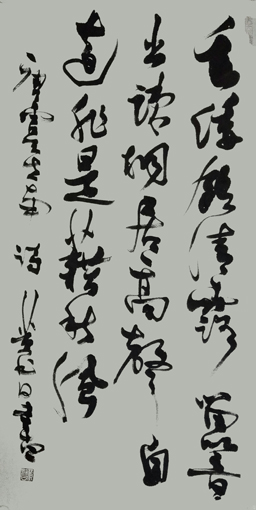 垂緌飲清露響
出疎桐居高聲自
遠非是藉秋風
虞世南 詩 書